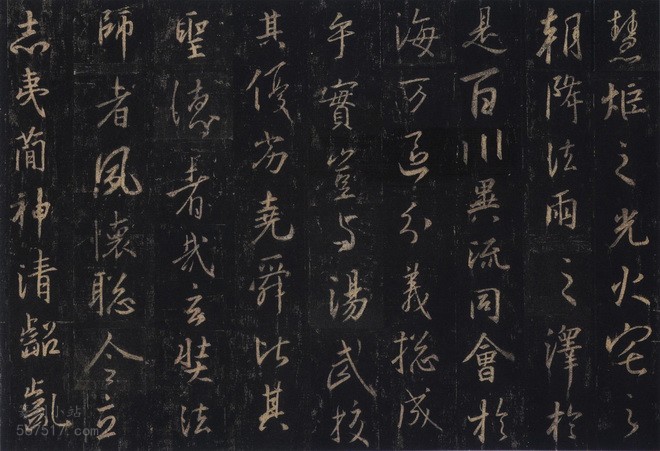 慧炬之光火宅之
朝降法雨之澤於
是百川異流同會於
海万區分義揔成
乎實豈与湯武校
其優劣堯舜比其
聖德者哉玄奘法
師者夙懷聡令立
志夷簡神清齠齔
小站